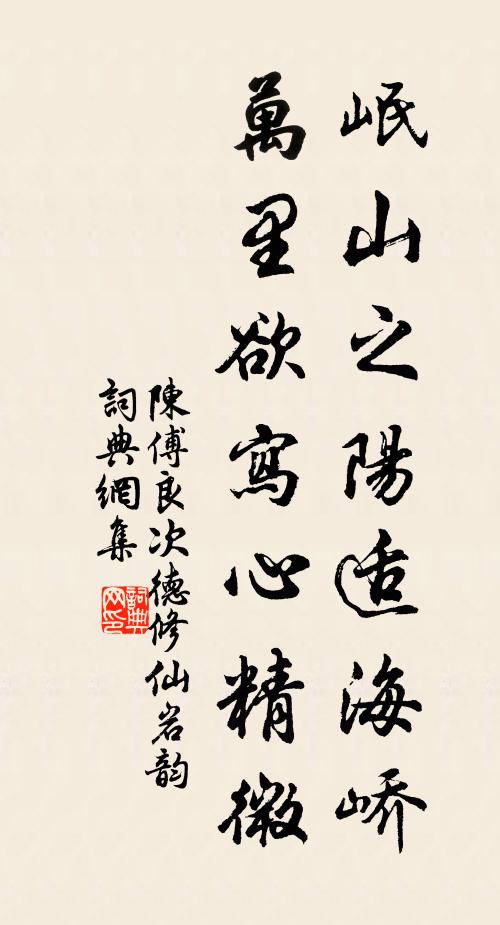 岷山之陽适海嶠
萬里欲寫心精微
陳傅良次德修仙岩韵
詞典網集
詞典网印